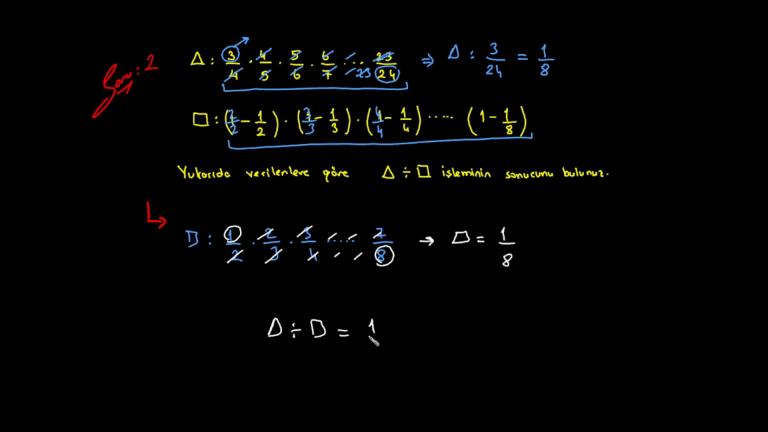 Soru: 2
△: 3/4 · 4/5 · 5/6 · 6/7 ... 23/24 ⇒ △: 3/24 = 1/8
□: (2/2 - 1/2) · (3/3 - 1/3) · (4/4 - 1/4) ..... (1 - 1/8)
Yukarıda verilenlere göre △ ÷ □ işleminin sonucunu bulunuz.
□: 1/2 · 2/3 · 3/4 ..... 7/8 → □ = 1/8
△ ÷ □ = 1